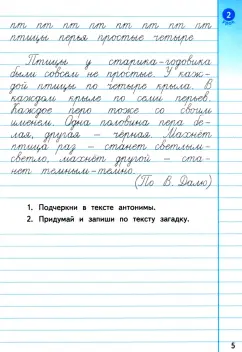 2
урок
пт пт пт пт пт пт пт пт
птицы перья простые четыре
Птицы у старика-годовика
были совсем не простые. У каж-
дой птицы по четыре крыла. В
каждом крыле по семи перьев.
Каждое перо тоже со своим
именем. Одна половина пера бе-
лая, другая — чёрная. Махнёт
птица раз — станет светлым-
светло, махнёт другой — ста-
нет темным-темно.
(По В. Далю)
1. Подчеркни в тексте антонимы.
2. Придумай и запиши по тексту загадку.
5